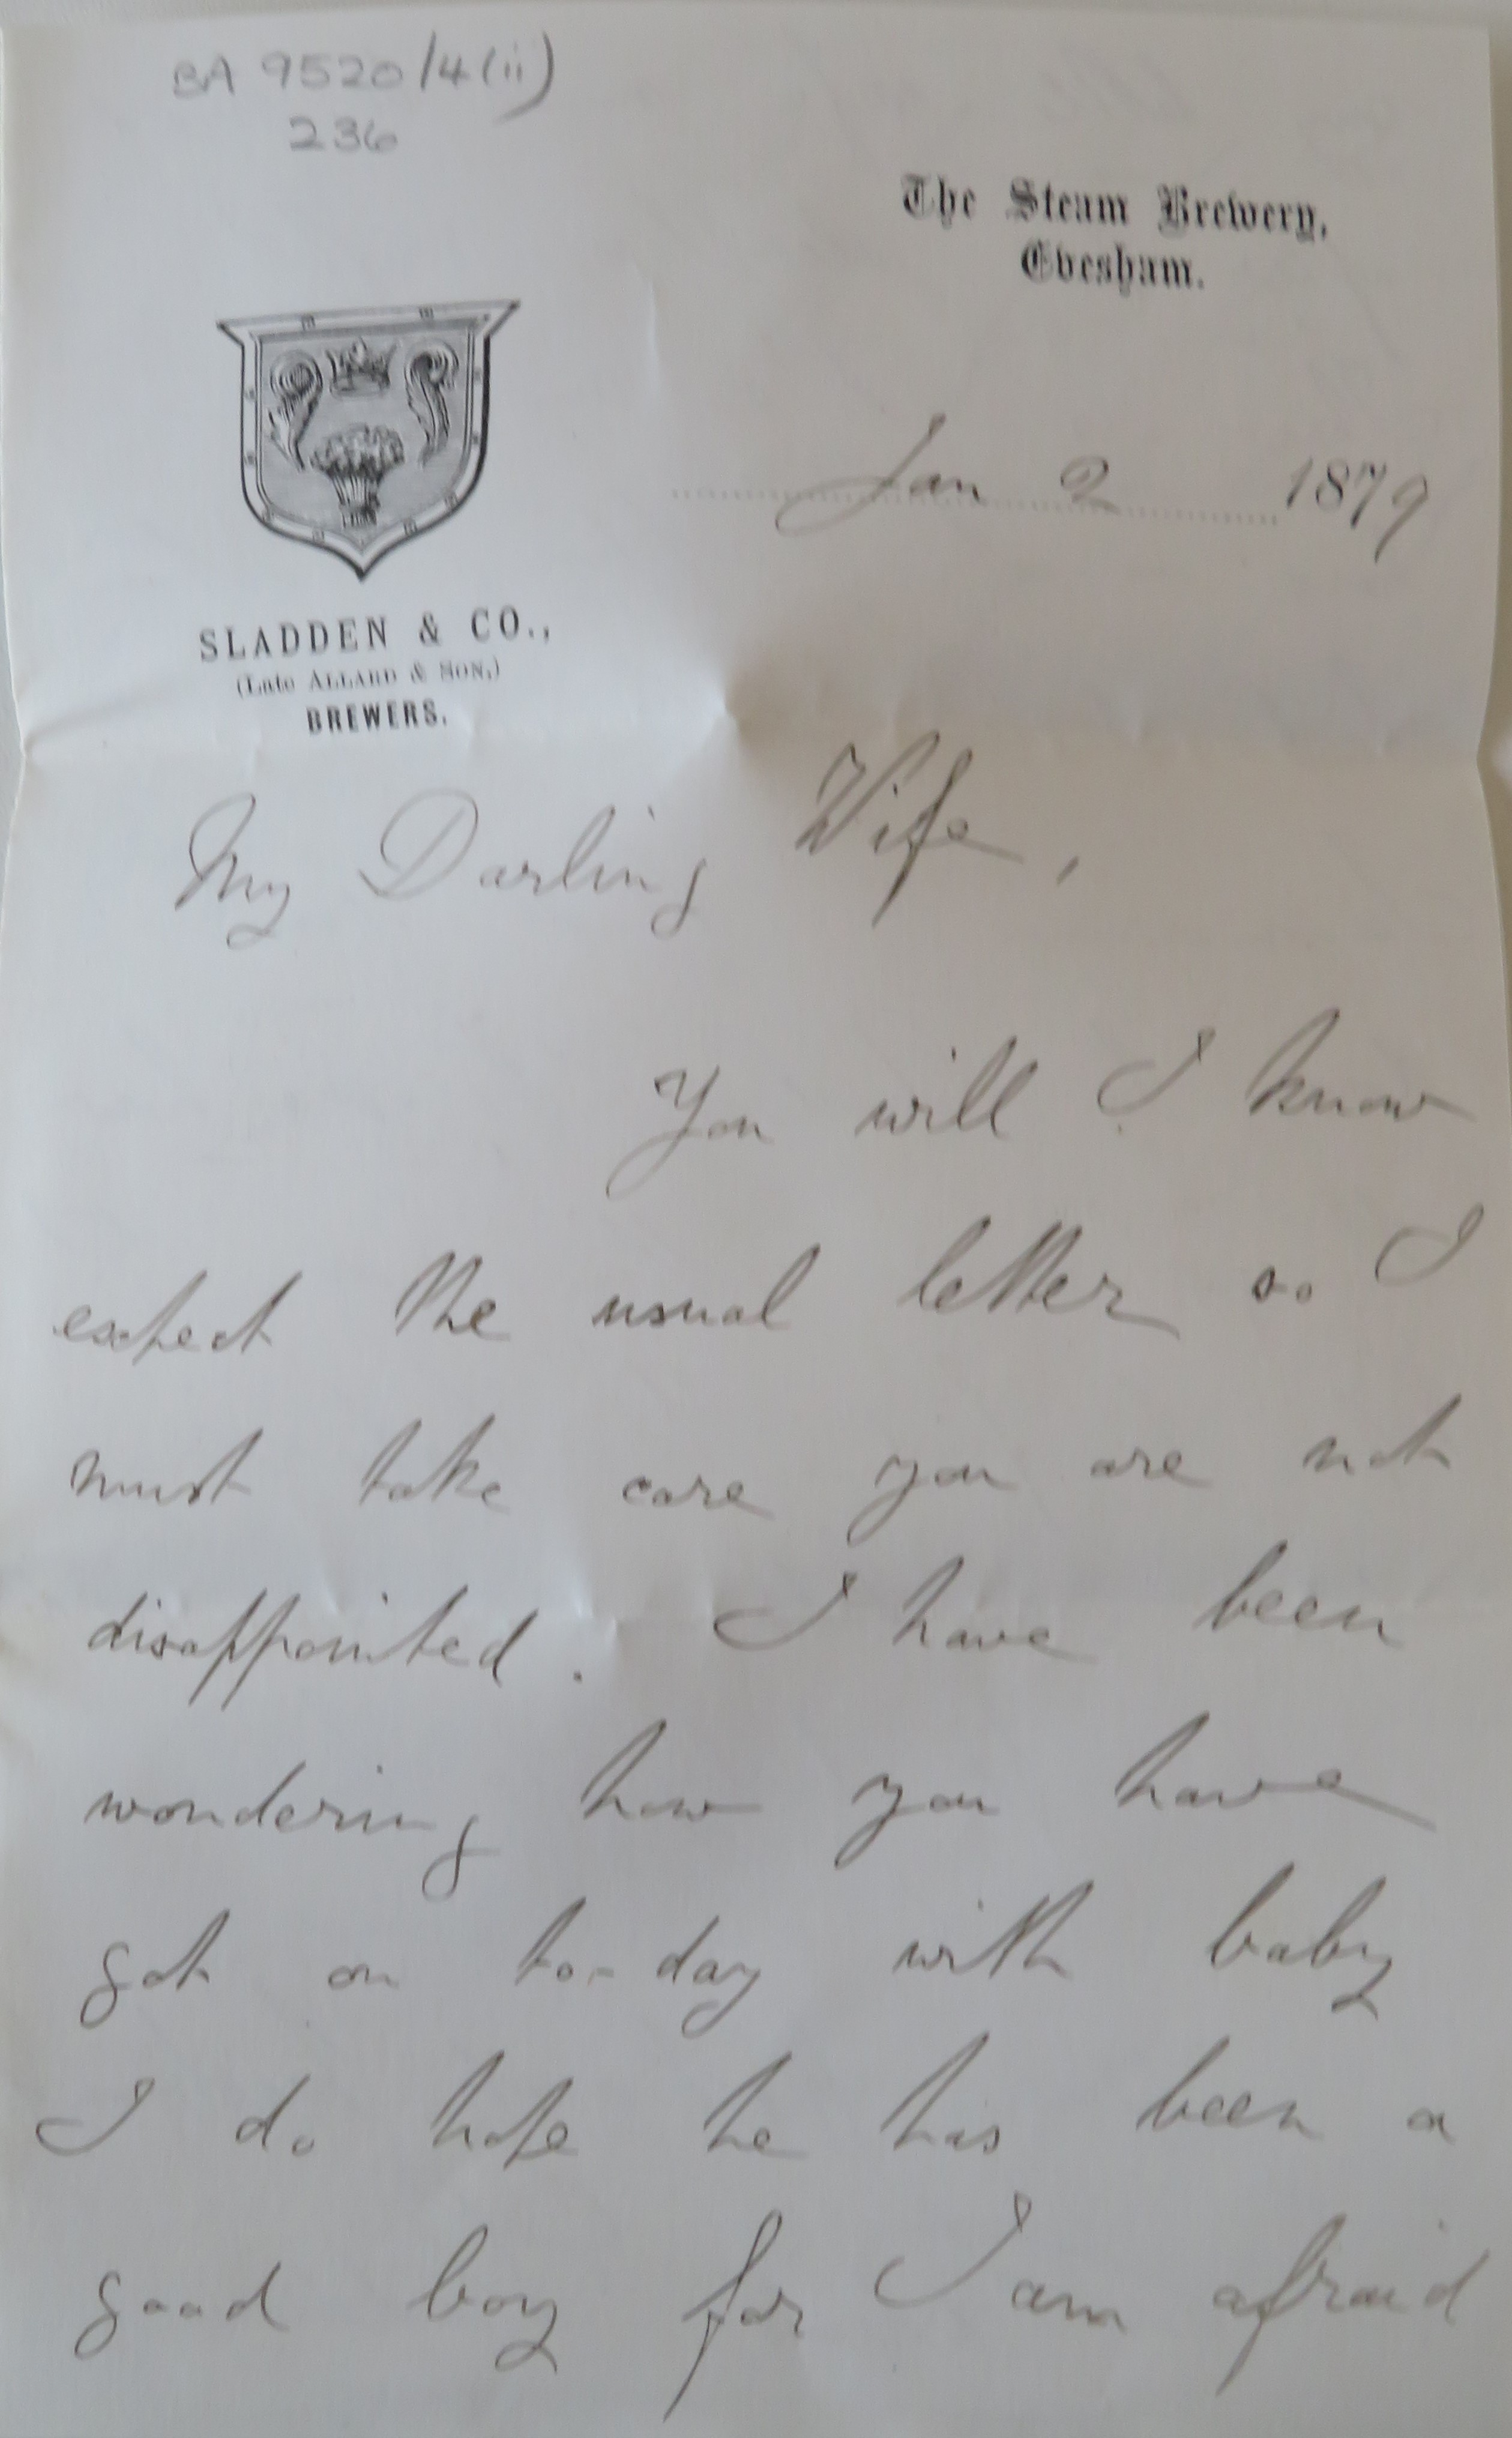 BA 9520/4(ii)
236
The Steam Brewery,
Evesham.
Jan 2 1879
SLADDEN & CO.,
(Late ALLARD & SON,)
BREWERS.
My Darling Wife,
You will I know
expect the usual letter so I
must take care you are not
disappointed. I have been
wondering how you have
got on to-day with baby
I do hope he has been a
good boy for I am afraid